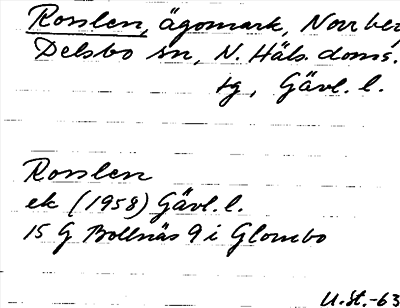 Rosslen, ägomark, Norrbe,
Delsbo sn, N. Häls. doms.
tg, Gävl. l.
Rosslen
ek (1958) Gävl. l.
15 G Bollnäs 9 i Glombo
U.St.-63